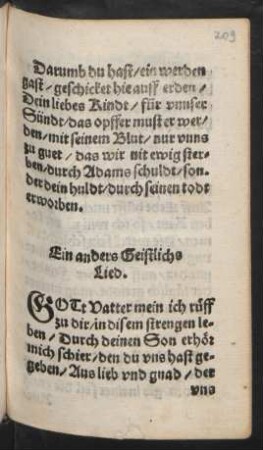 209
Darumb du hast / ein werden
gast / geschicket hie auff erden /
Dein liebes Kindt / für vnnser
Sündt / das opffer must er wer/
den / mit seinem Blut / nur vnns
zu guet / das wir nit ewig ster/
ben / durch Adams schuldt / son/
der dein huldt / durch seinen todt
erworben.
Ein anders Geistlichs
Lied.
GOTt Vatter mein ich rüff
zu dir / in disem strengen le/
ben / Durch deinen Son erhör
mich schier / den du vns hast ge/
geben / Aus lieb vnd gnad / der
vns